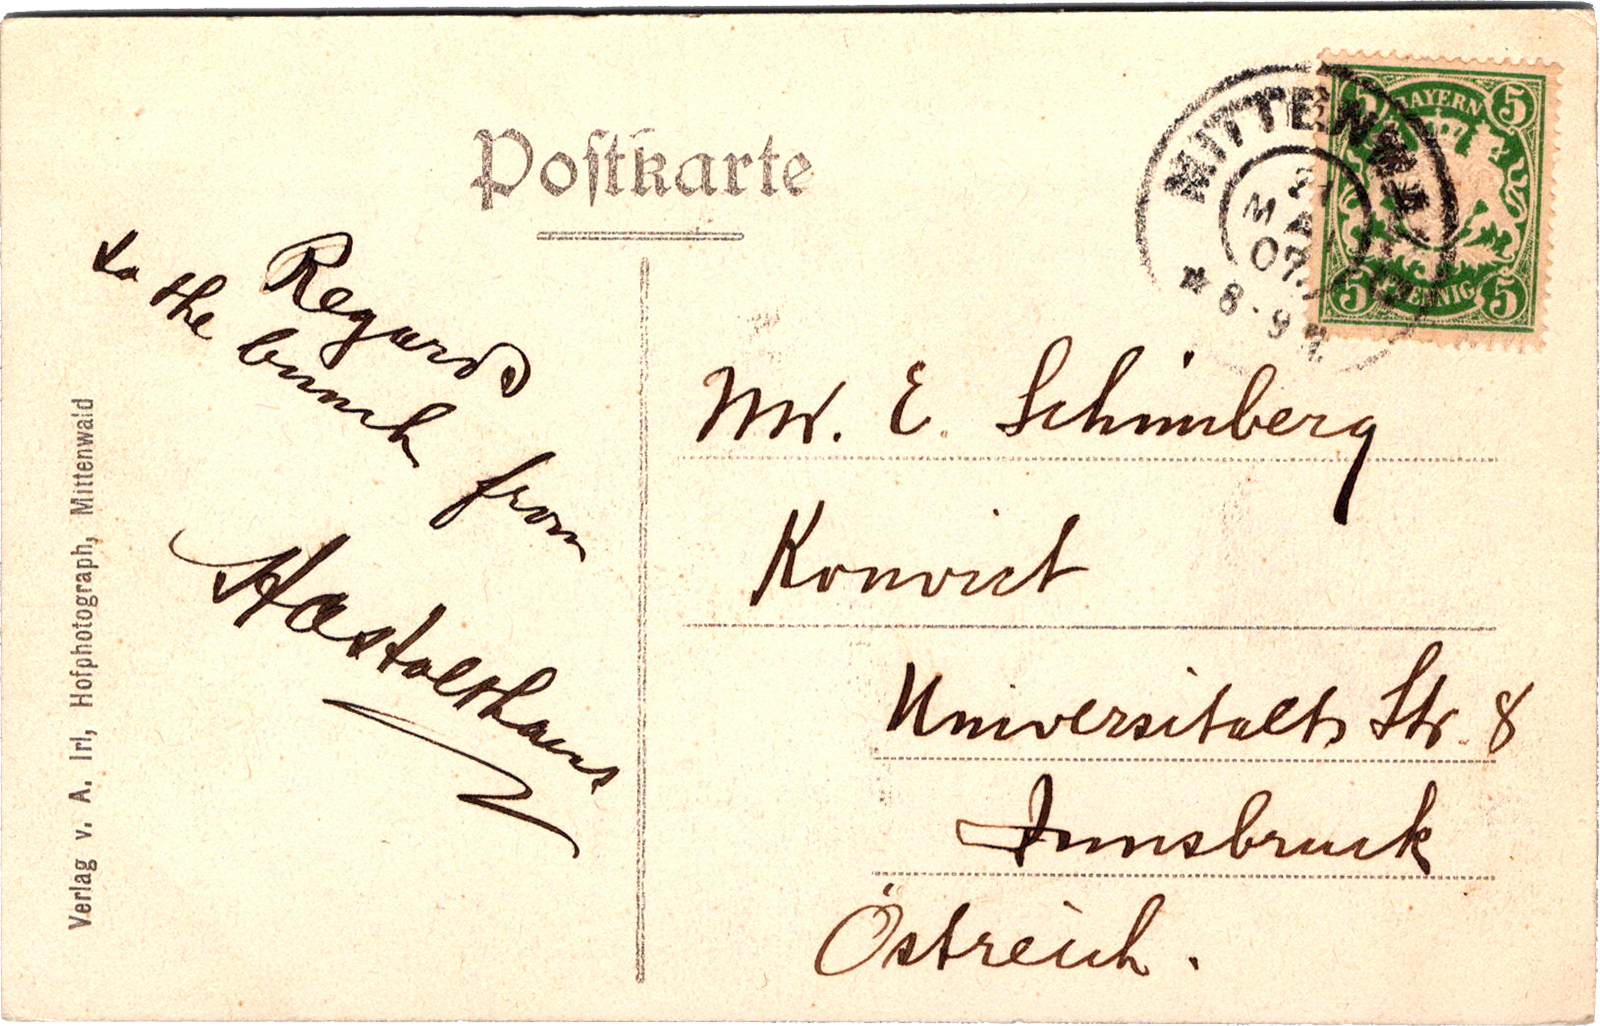 Postkarte
MITTENWALD
MAI
07
8-9
BAYERN
5 5
5 5
PFENNIG
Regards
to the bunch from
Mr. E. Schimberg
Konvict
Universitalts Str. 8
Innsbruck
Östreich.
Verlag v. A. Irl, Hofphotograph, Mittenwald